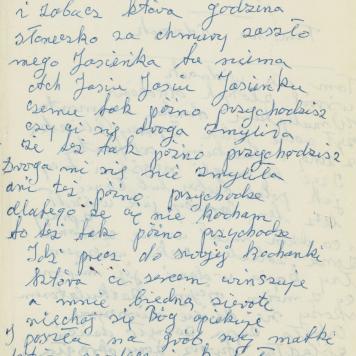 i zobacz która godzina
słoneczko za chmury zaszło
mego Jasieńka tu niema
Ach Jasiu Jasiu Jasieńku
czemu tak późno przychodzisz
czy ci się droga zmyliła
że też tak późno przychodzisz
Droga mi się nie zmyliła
ani też późno przychodze
dlatego że cię nie kocham
to też tak późno przychodze
Idź precz do swojej kochanki
która ci sercem winszuje
a mnie biedną sierotę
niechaj się Bóg opiekuje
I poszła na grób swej matki